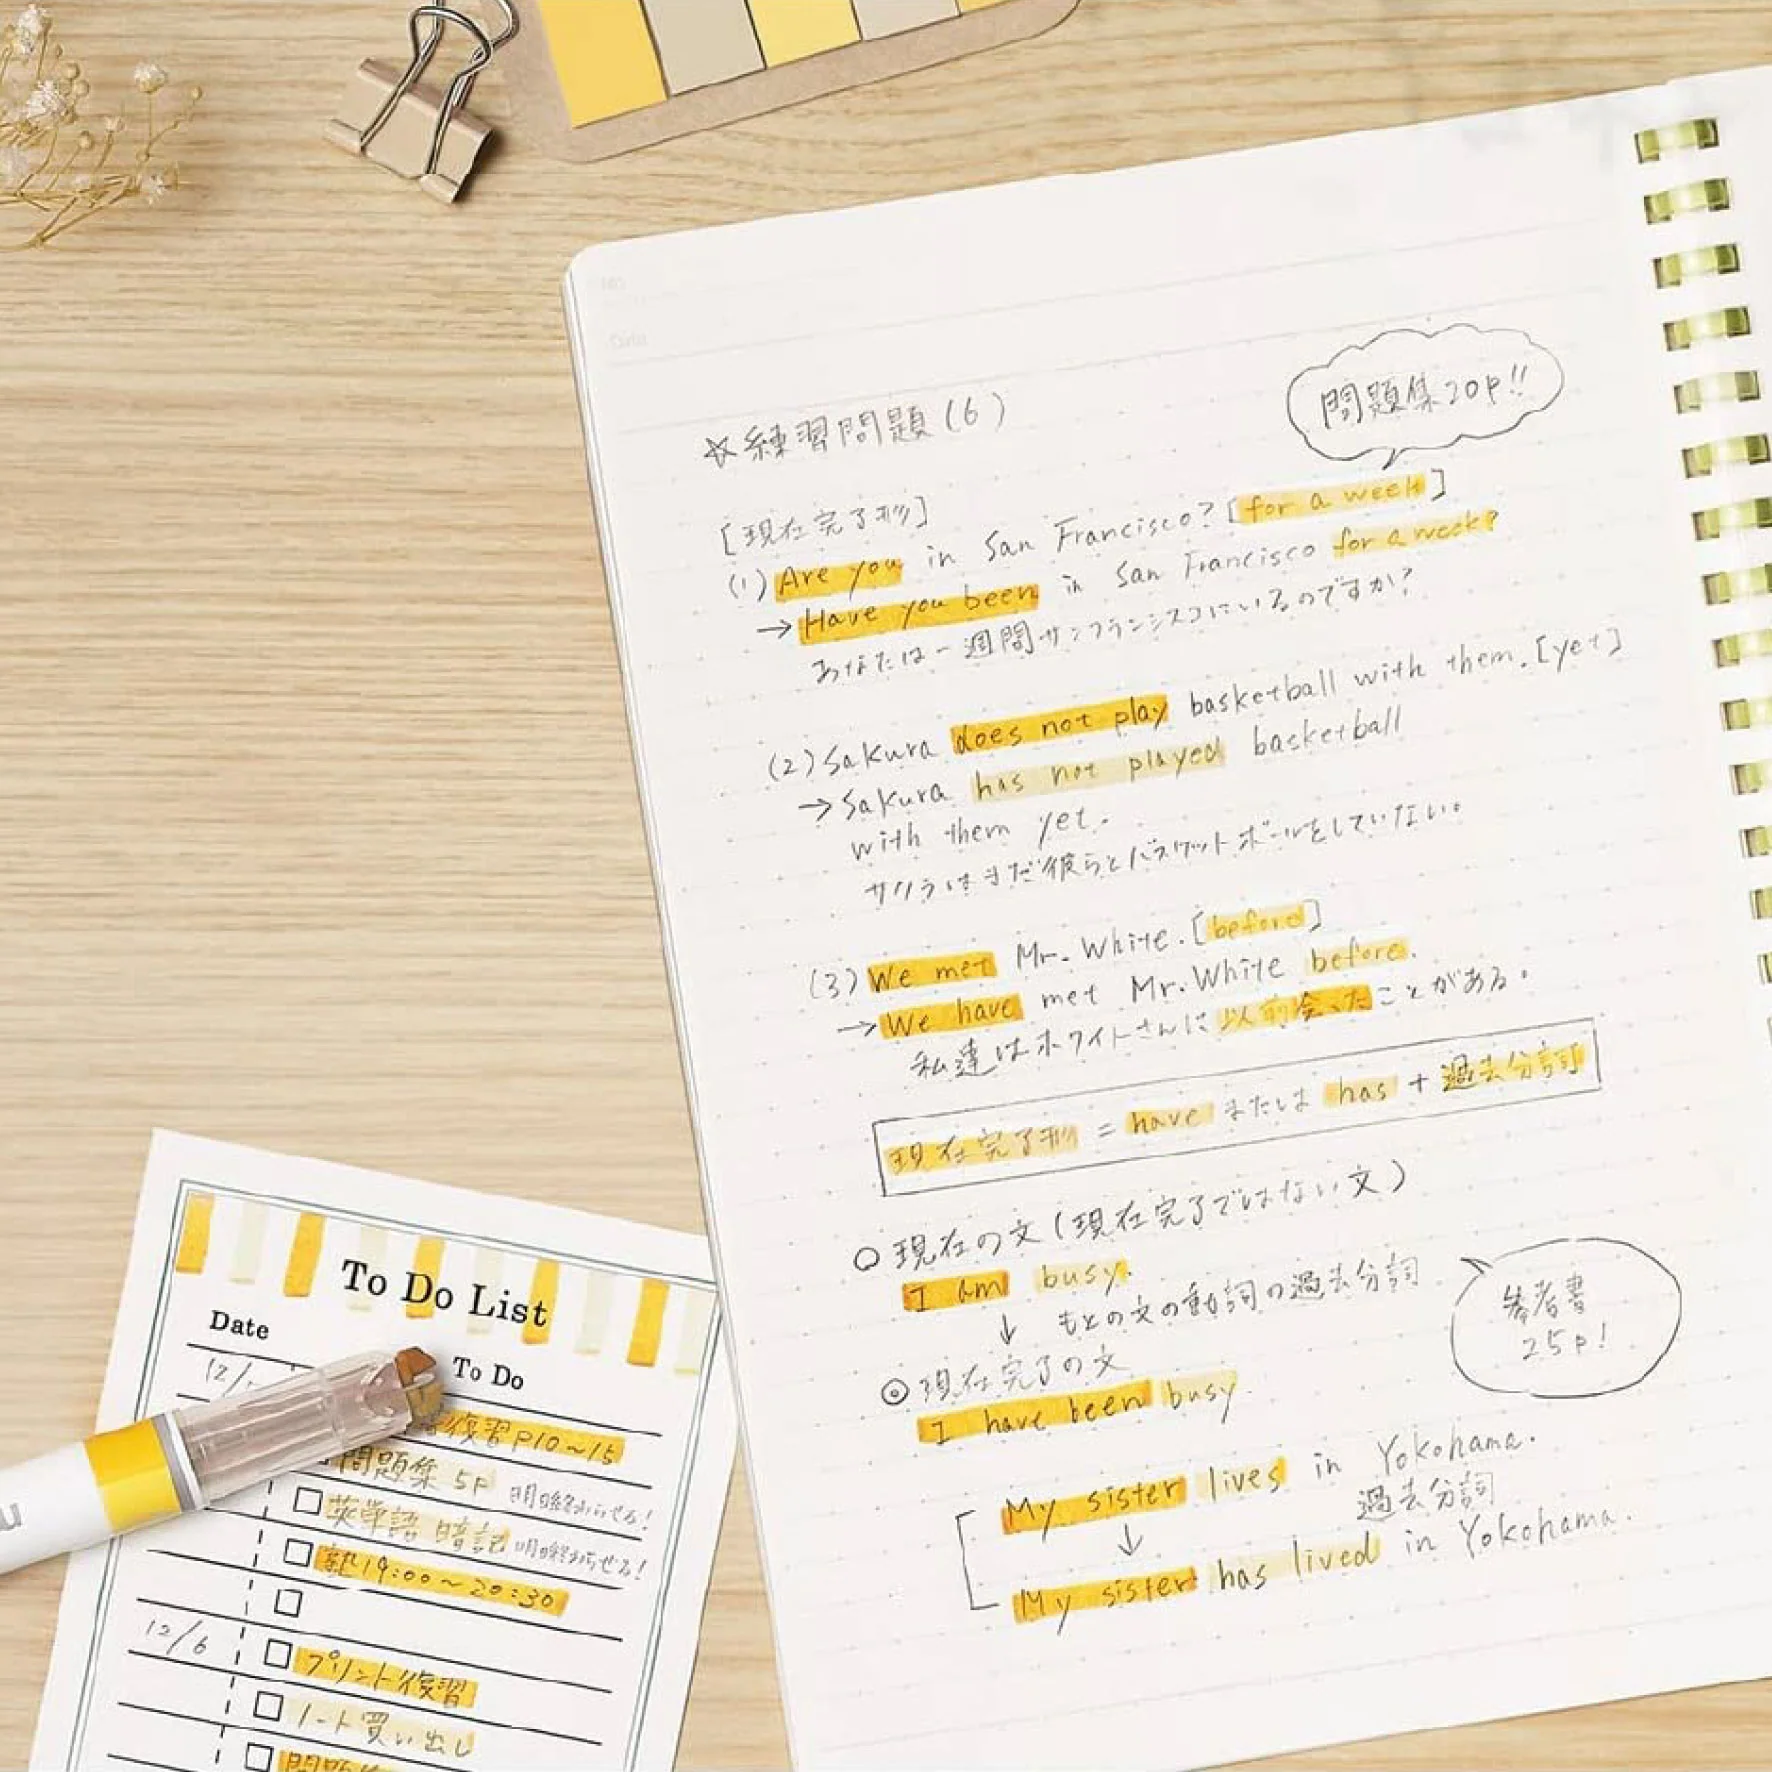 問題集20p!!
☆練習問題(6)
[現在完了形]
(1) Are you in San Francisco? [for a week]
→ Have you been in San Francisco for a week?
あなたは一週間サンフランシスコにいるのですか?
(2) Sakura does not play basketball with them. [yet]
→ Sakura has not played basketball
with them yet.
サクラはまだ彼らとバスケットボールをしていない。
(3) We met Mr. White. [before]
→ We have met Mr. White before.
私達はホワイトさんに以前会ったことがある。
現在完了形 = have または has + 過去分詞
○ 現在の文(現在完了ではない文)
I am busy.
↓ もとの文の動詞の過去分詞
◎ 現在完了の文
I have been busy.
参考書
25p!
My sister lives in Yokohama.
↓ 過去分詞
My sister has lived in Yokohama.
To Do List
Date
To Do
12/
復習P10~15
問題集 5P 明日終わらせる!
英単語 暗記 明日終わらせる!
塾19:00~20:30
12/6 プリント復習
ノート買い出し